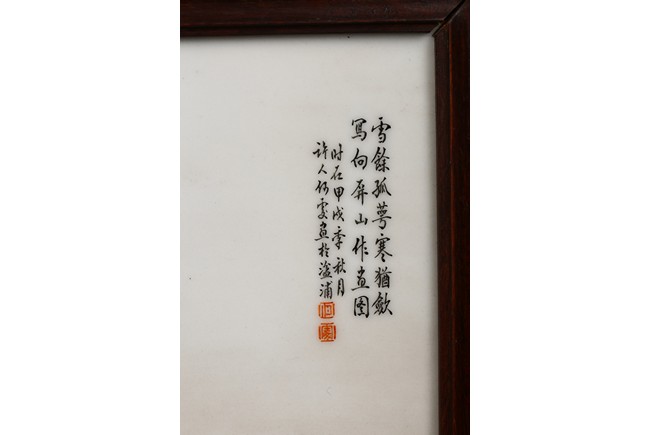 雪餘孤萼寒猶歛
寫向屏山作畫圖
时在甲戌季秋月
許人何處畫於湓浦
何
處